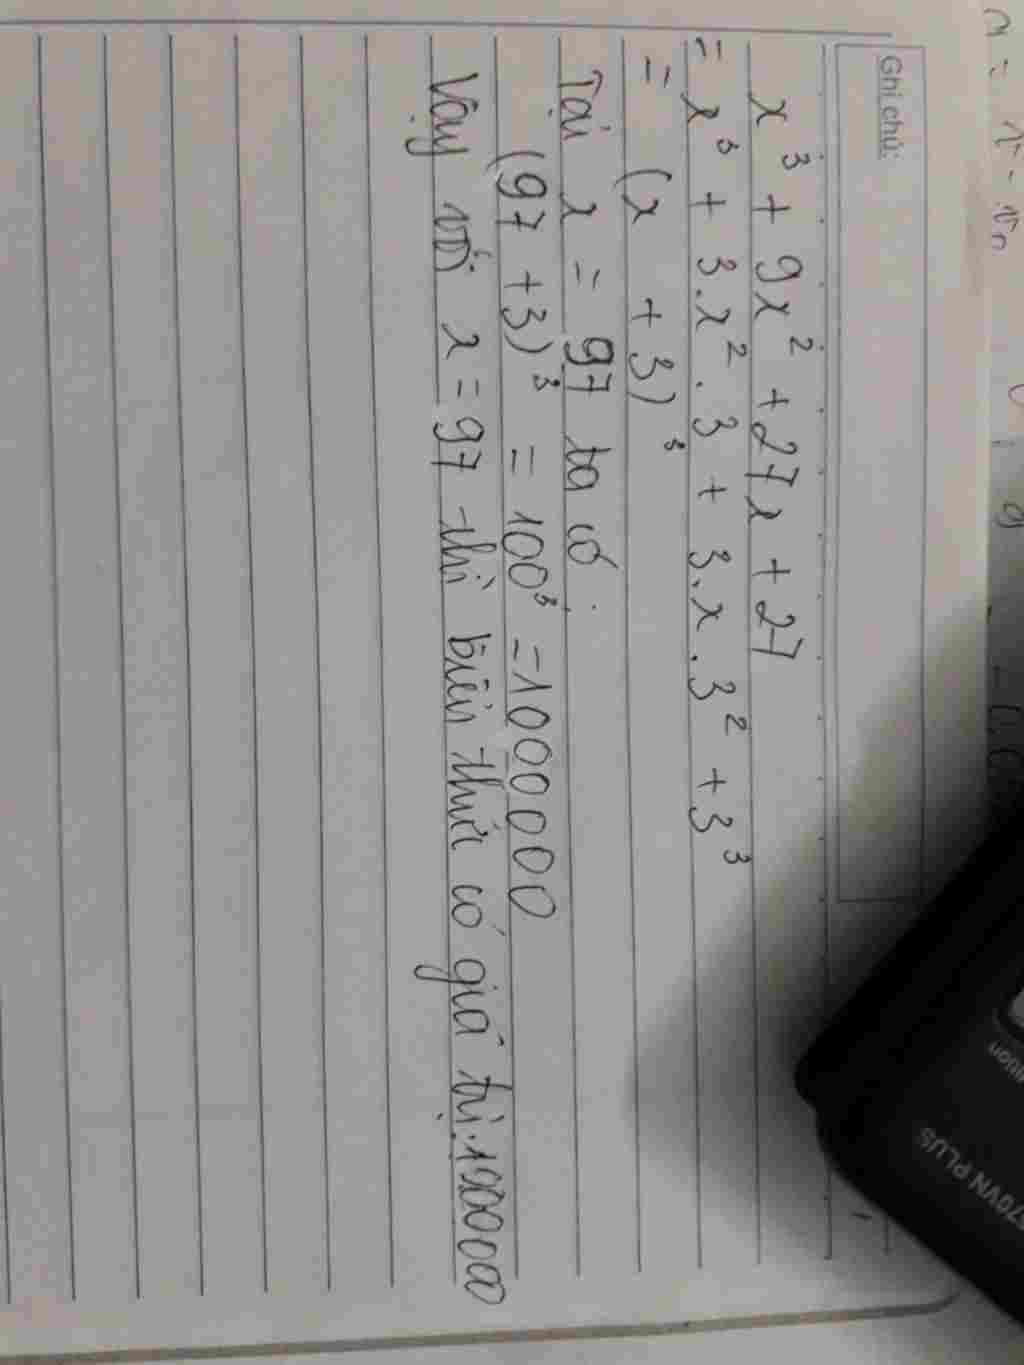 Ghi chú:
x³ + 9x² + 27x + 27
= x³ + 3.x².3 + 3.x.3² + 3³
= (x + 3)³
Tại x = 97 ta có:
(97 + 3)³ = 100³ = 1000000
Vậy với x = 97 thì biểu thức có giá trị.1000000
70VN PLUS